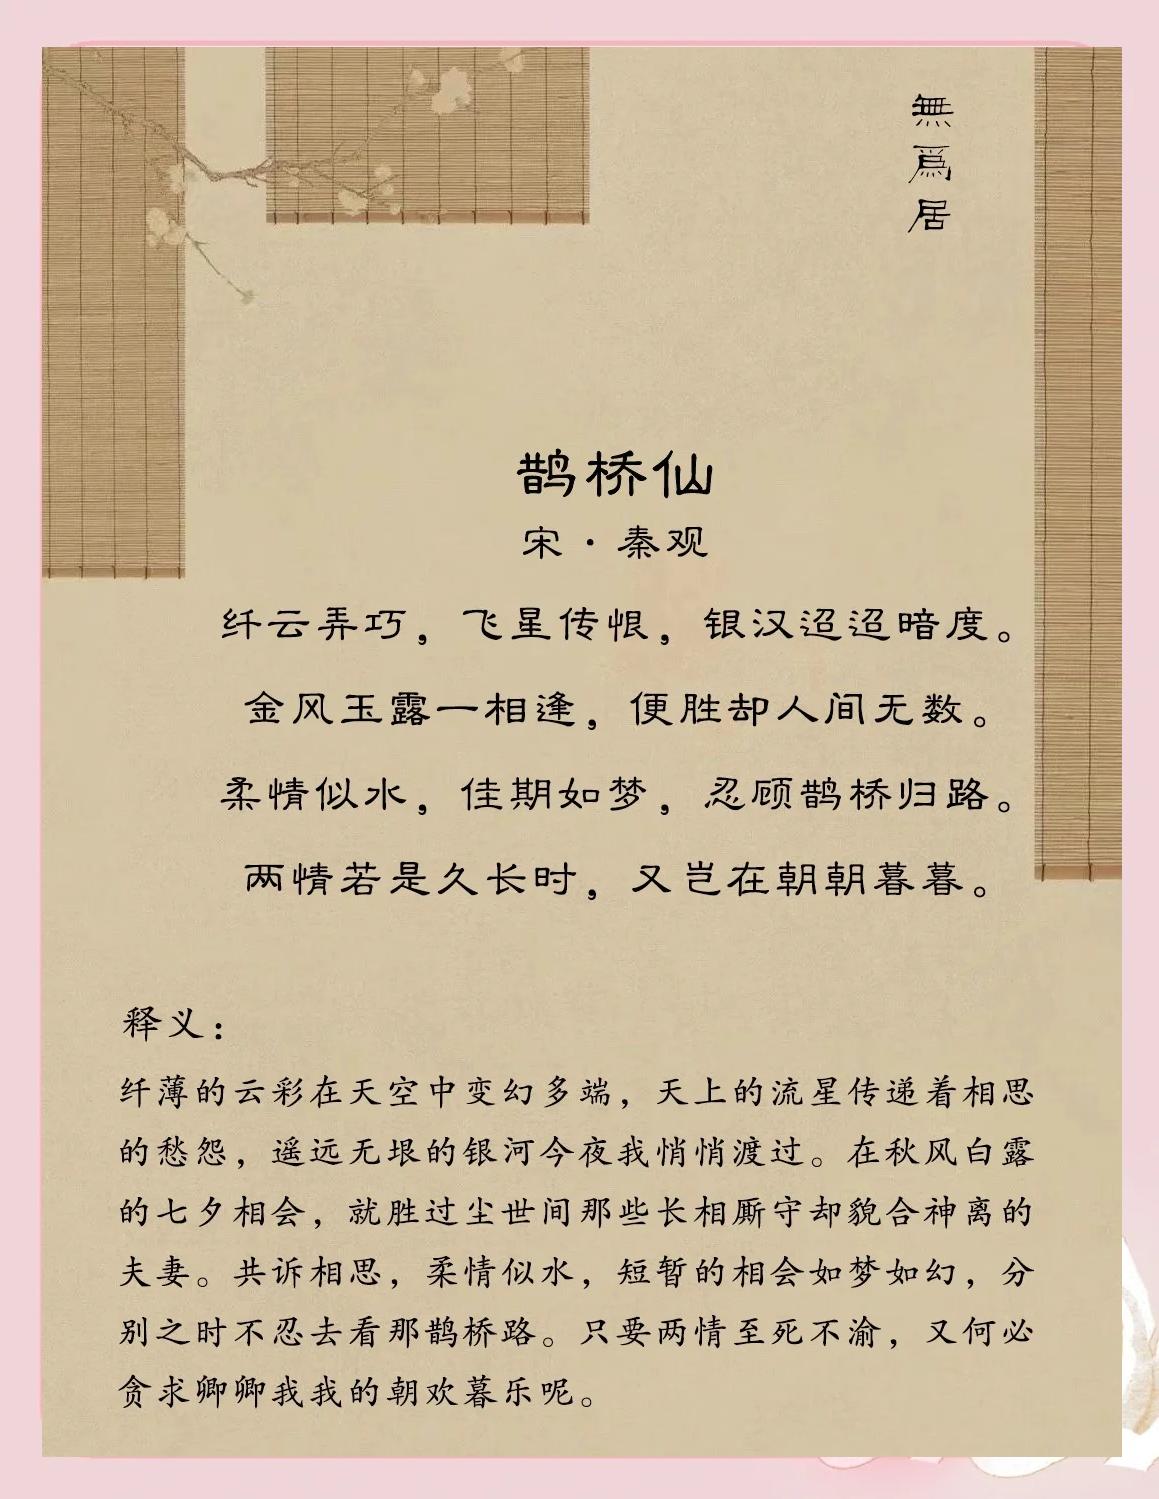 無爲居
鹊桥仙
宋·秦观
纤云弄巧，飞星传恨，银汉迢迢暗度。
金风玉露一相逢，便胜却人间无数。
柔情似水，佳期如梦，忍顾鹊桥归路。
两情若是久长时，又岂在朝朝暮暮。
释义：
纤薄的云彩在天空中变幻多端，天上的流星传递着相思
的愁怨，遥远无垠的银河今夜我悄悄渡过。在秋风白露
的七夕相会，就胜过尘世间那些长相厮守却貌合神离的
夫妻。共诉相思，柔情似水，短暂的相会如梦如幻，分
别之时不忍去看那鹊桥路。只要两情至死不渝，又何必
贪求卿卿我我的朝欢暮乐呢。